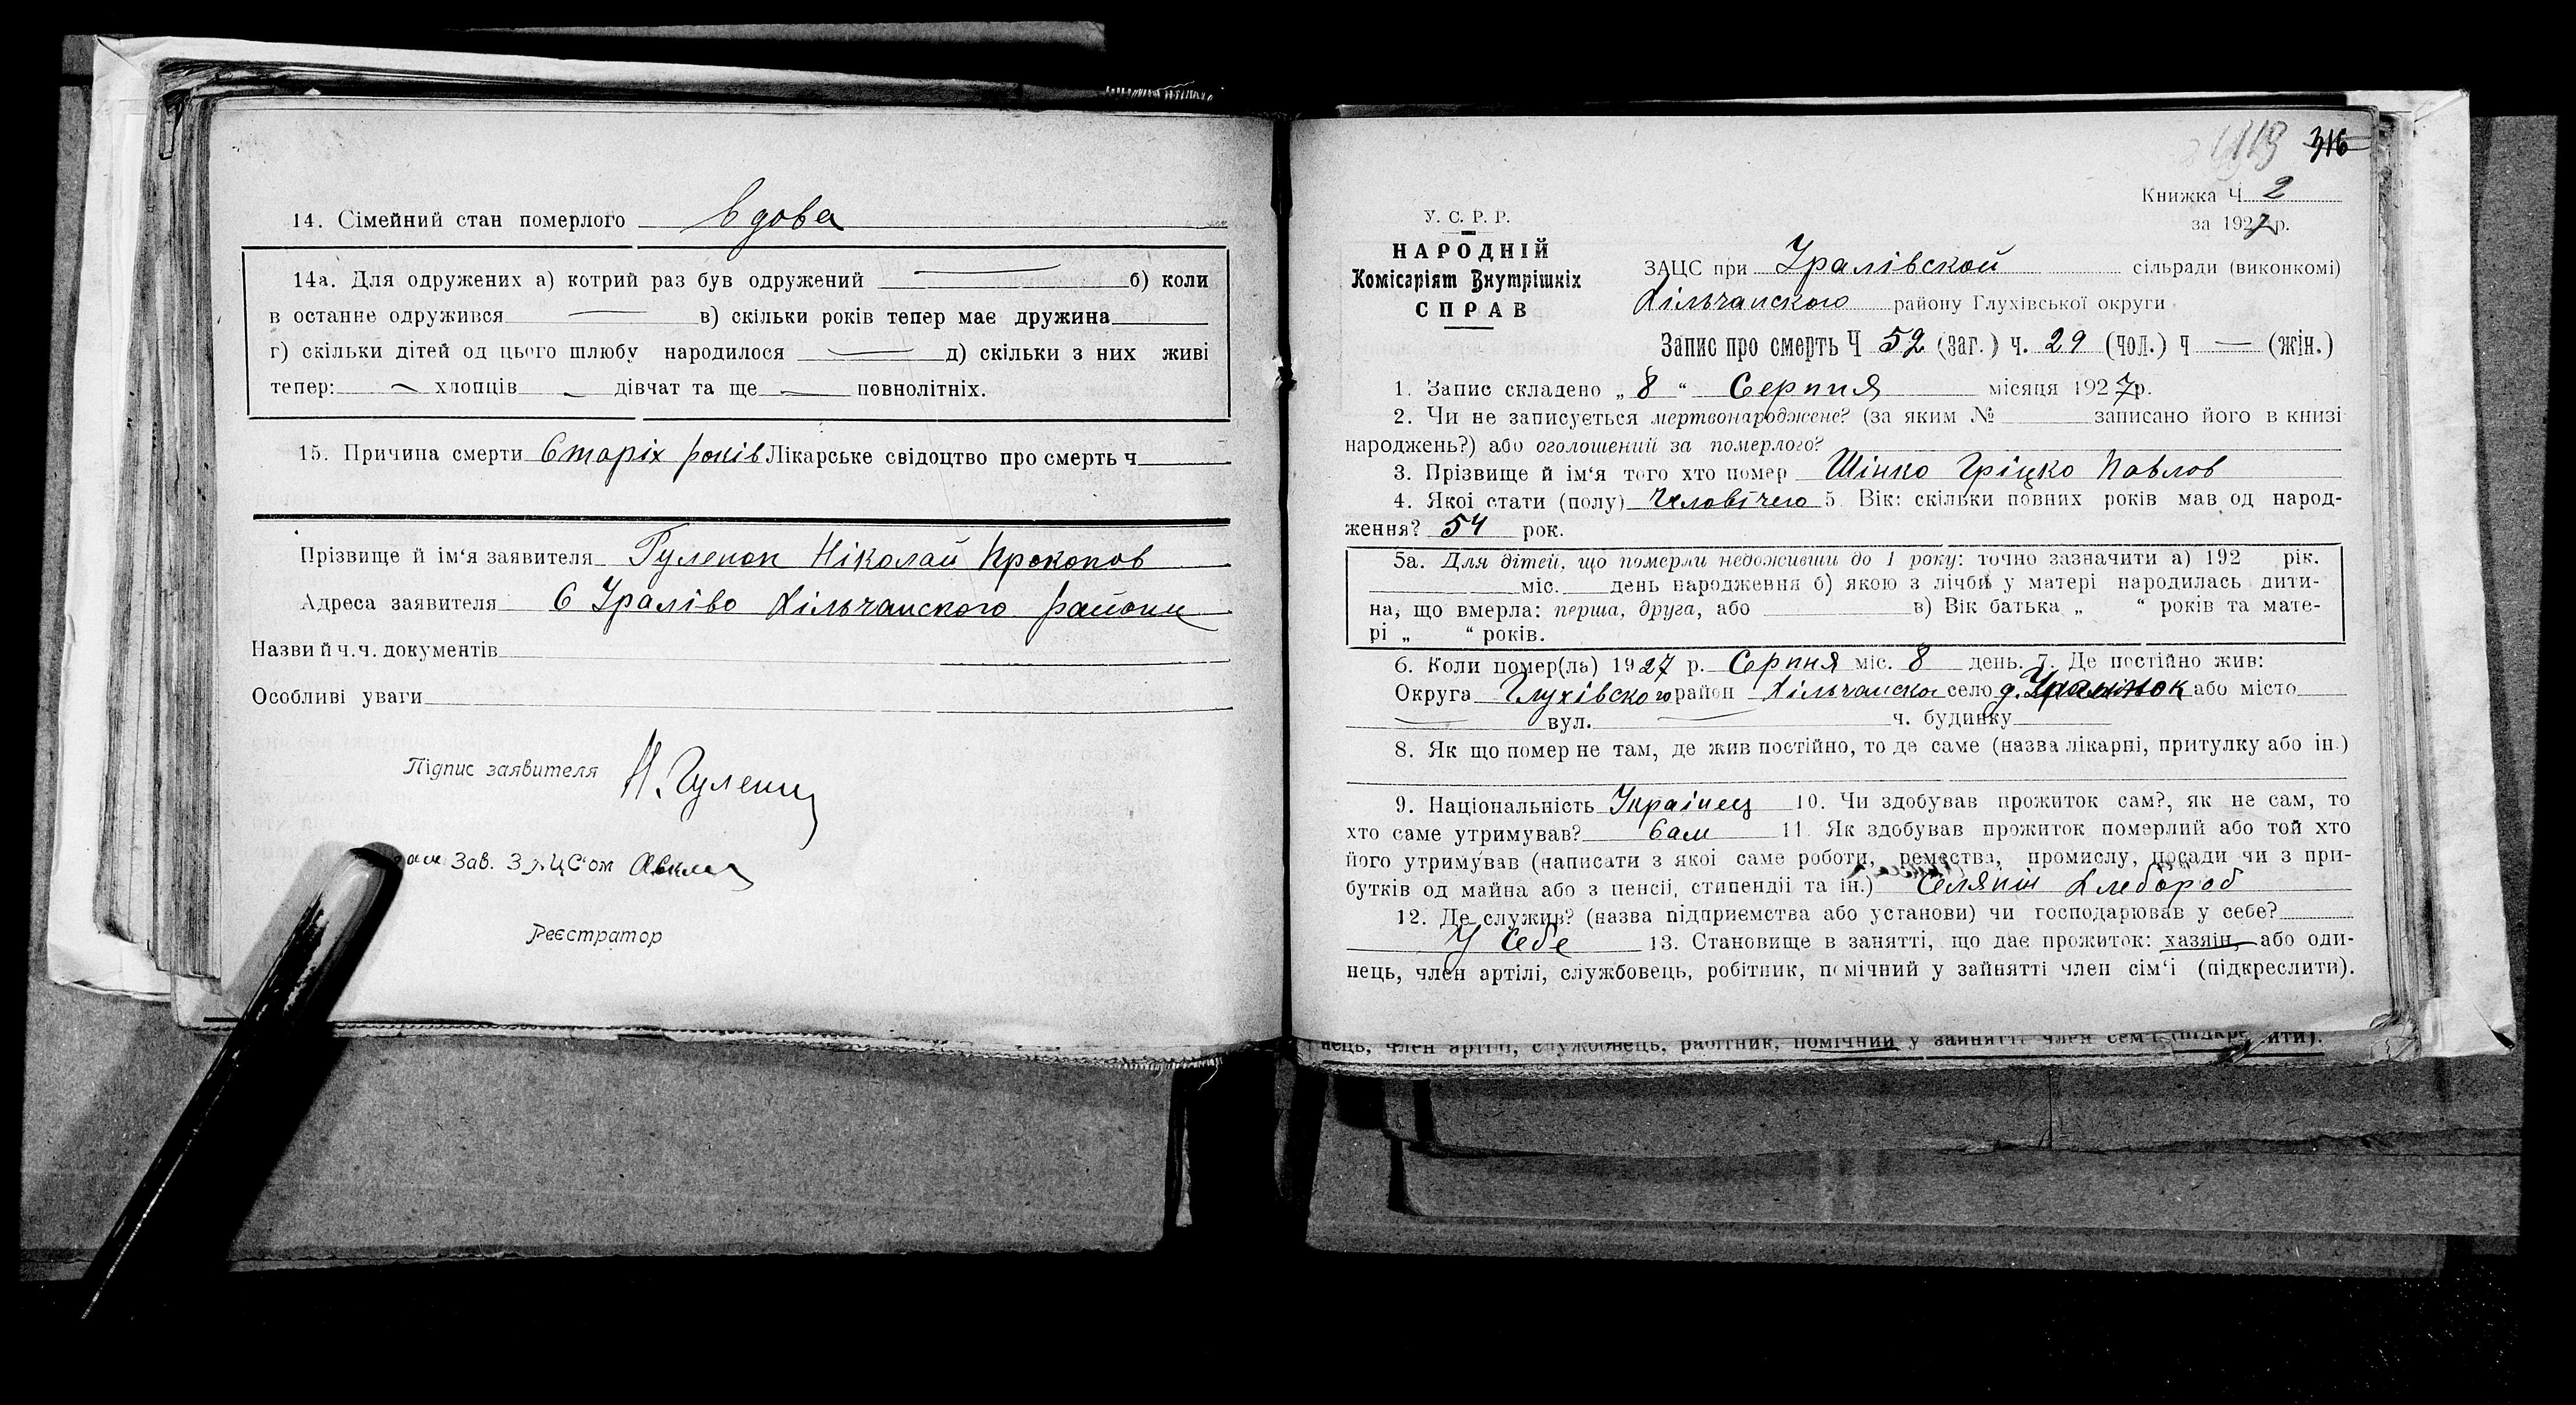 14. Сімейний стан померлого Вдова
14а. Для одружених а) котрий раз був одружений б) коли
в останнє одружився в) скільки років тепер має дружина
г) скільки дітей од цього шлюбу народилося д) скільки з них живі
тепер: хлопців дівчат та ще повнолітніх.
15. Причина смерти Старіх років Лікарське свідоцтво про смерть ч
Прізвище й ім'я заявителя Гулепоп Ніколай Прокопов
Адреса заявителя С Ураліво Хільчанского району
Назви й ч.ч. документів
Особливі уваги
Підпис заявителя Н. Гулепп
Зав. ЗАЦС'ом
Реєстратор
316
Книжка Ч 2
за 1927 р.
У. С. Р. Р.
НАРОДНІЙ
Комісаріят Внутрішніх
СПРАВ
ЗАЦС при Уралівской сільради (виконкомі)
Хільчанского району Глухівської округи
Запис про смерть Ч 52 (заг.) ч. 29 (чол.) ч — (жін.)
1. Запис складено „ 8 “ Серпня місяця 1927 р.
2. Чи не записується мертвонароджене? (за яким № записано його в книзі
народжень?) або оголошений за померлого?
3. Прізвище й ім'я того хто помер Шінко Гріцко Павлов
4. Якої стати (полу) Чловічего 5 Вік: скільки повних років мав од народ-
ження? 54 рок.
5а. Для дітей, що померли недоживши до 1 року: точно зазначити а) 192 рік.
міс. день народження б) якою з лічби у матері народилась дити-
на, що вмерла: перша, друга, або в) Вік батька „ “ років та мате-
рі „ “ років.
6. Коли помер(ла) 1927 р. Серпня міс. 8 день. 7. Де постійно жив:
Округа Глухівского район Хільчанска село д. або місто
вул. ч. будинку
8. Як що помер не там, де жив постійно, то де саме (назва лікарні, притулку або ін.)
9. Національність Украінец 10. Чи здобував прожиток сам?, як не сам, то
хто саме утримував? Сам 11. Як здобував прожиток померлий або той хто
його утримував (написати з якої саме роботи, ремества, промислу, посади чи з при-
бутків од майна або з пенсії, стипендії та ін.) Селянін Хлебороб
12. Де служив? (назва підприємства або установи) чи господарював у себе?
У Себе 13. Становище в занятті, що дає прожиток: хазяїн, або оди-
нець, член артілі, службовець, робітник, помічний у зайнятті член сім'ї (підкреслити).
нець, член артілі, службовець, рабітник, помічний у зайнятті член сем'ї (підкреслити).